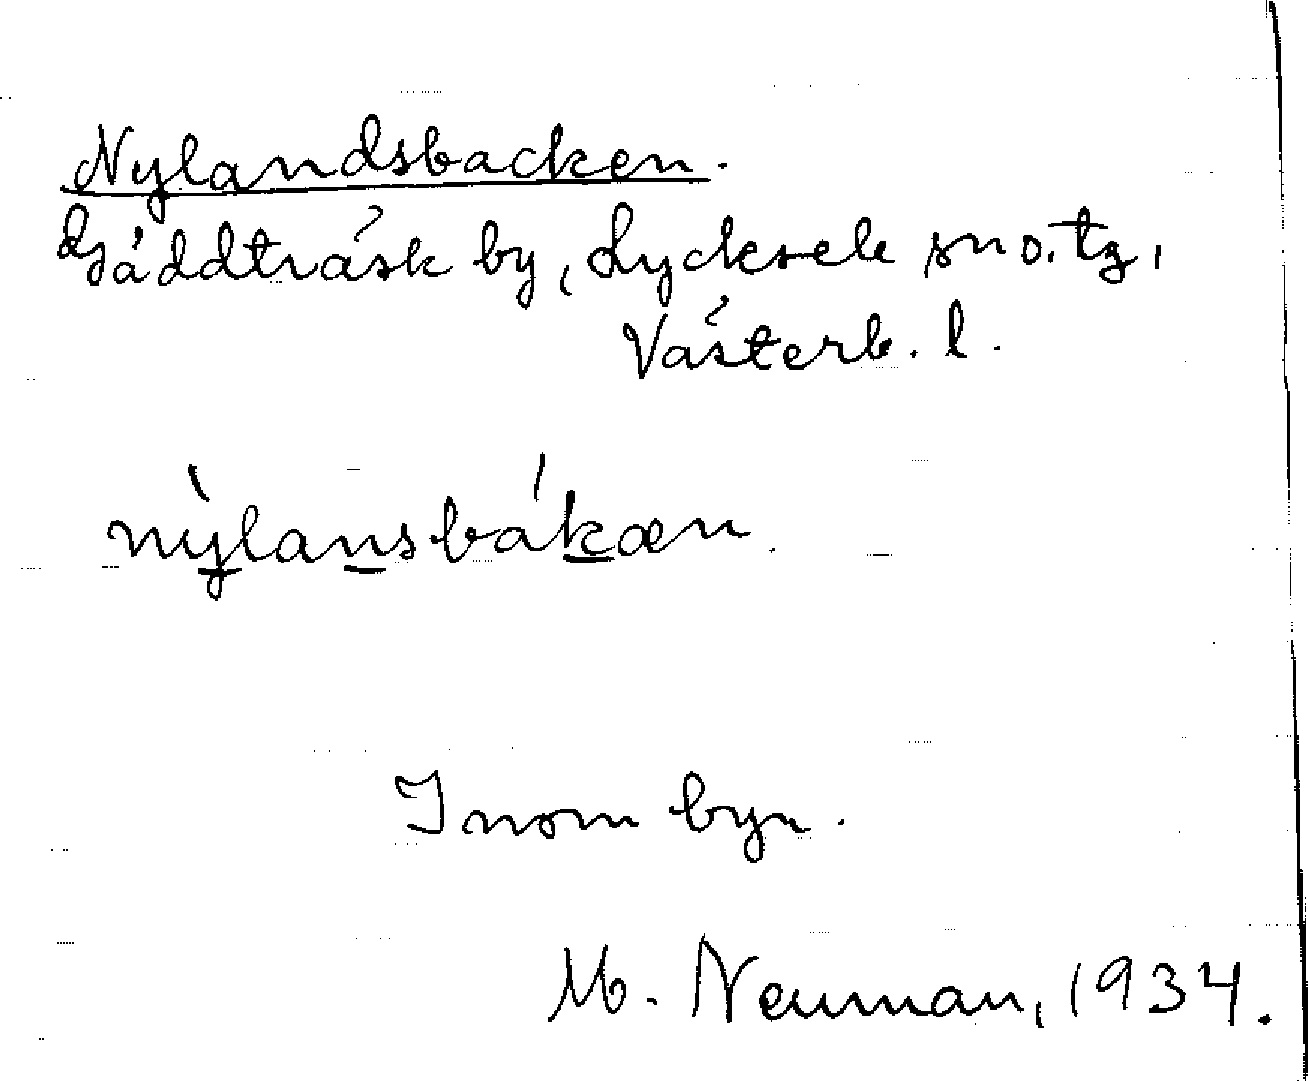 Nylandsbacken.
Gäddträsk by, Lycksele sn o. tg,
Västerb. l.
nỳlansbákæn.
Inom byn.
M. Neuman, 1934.